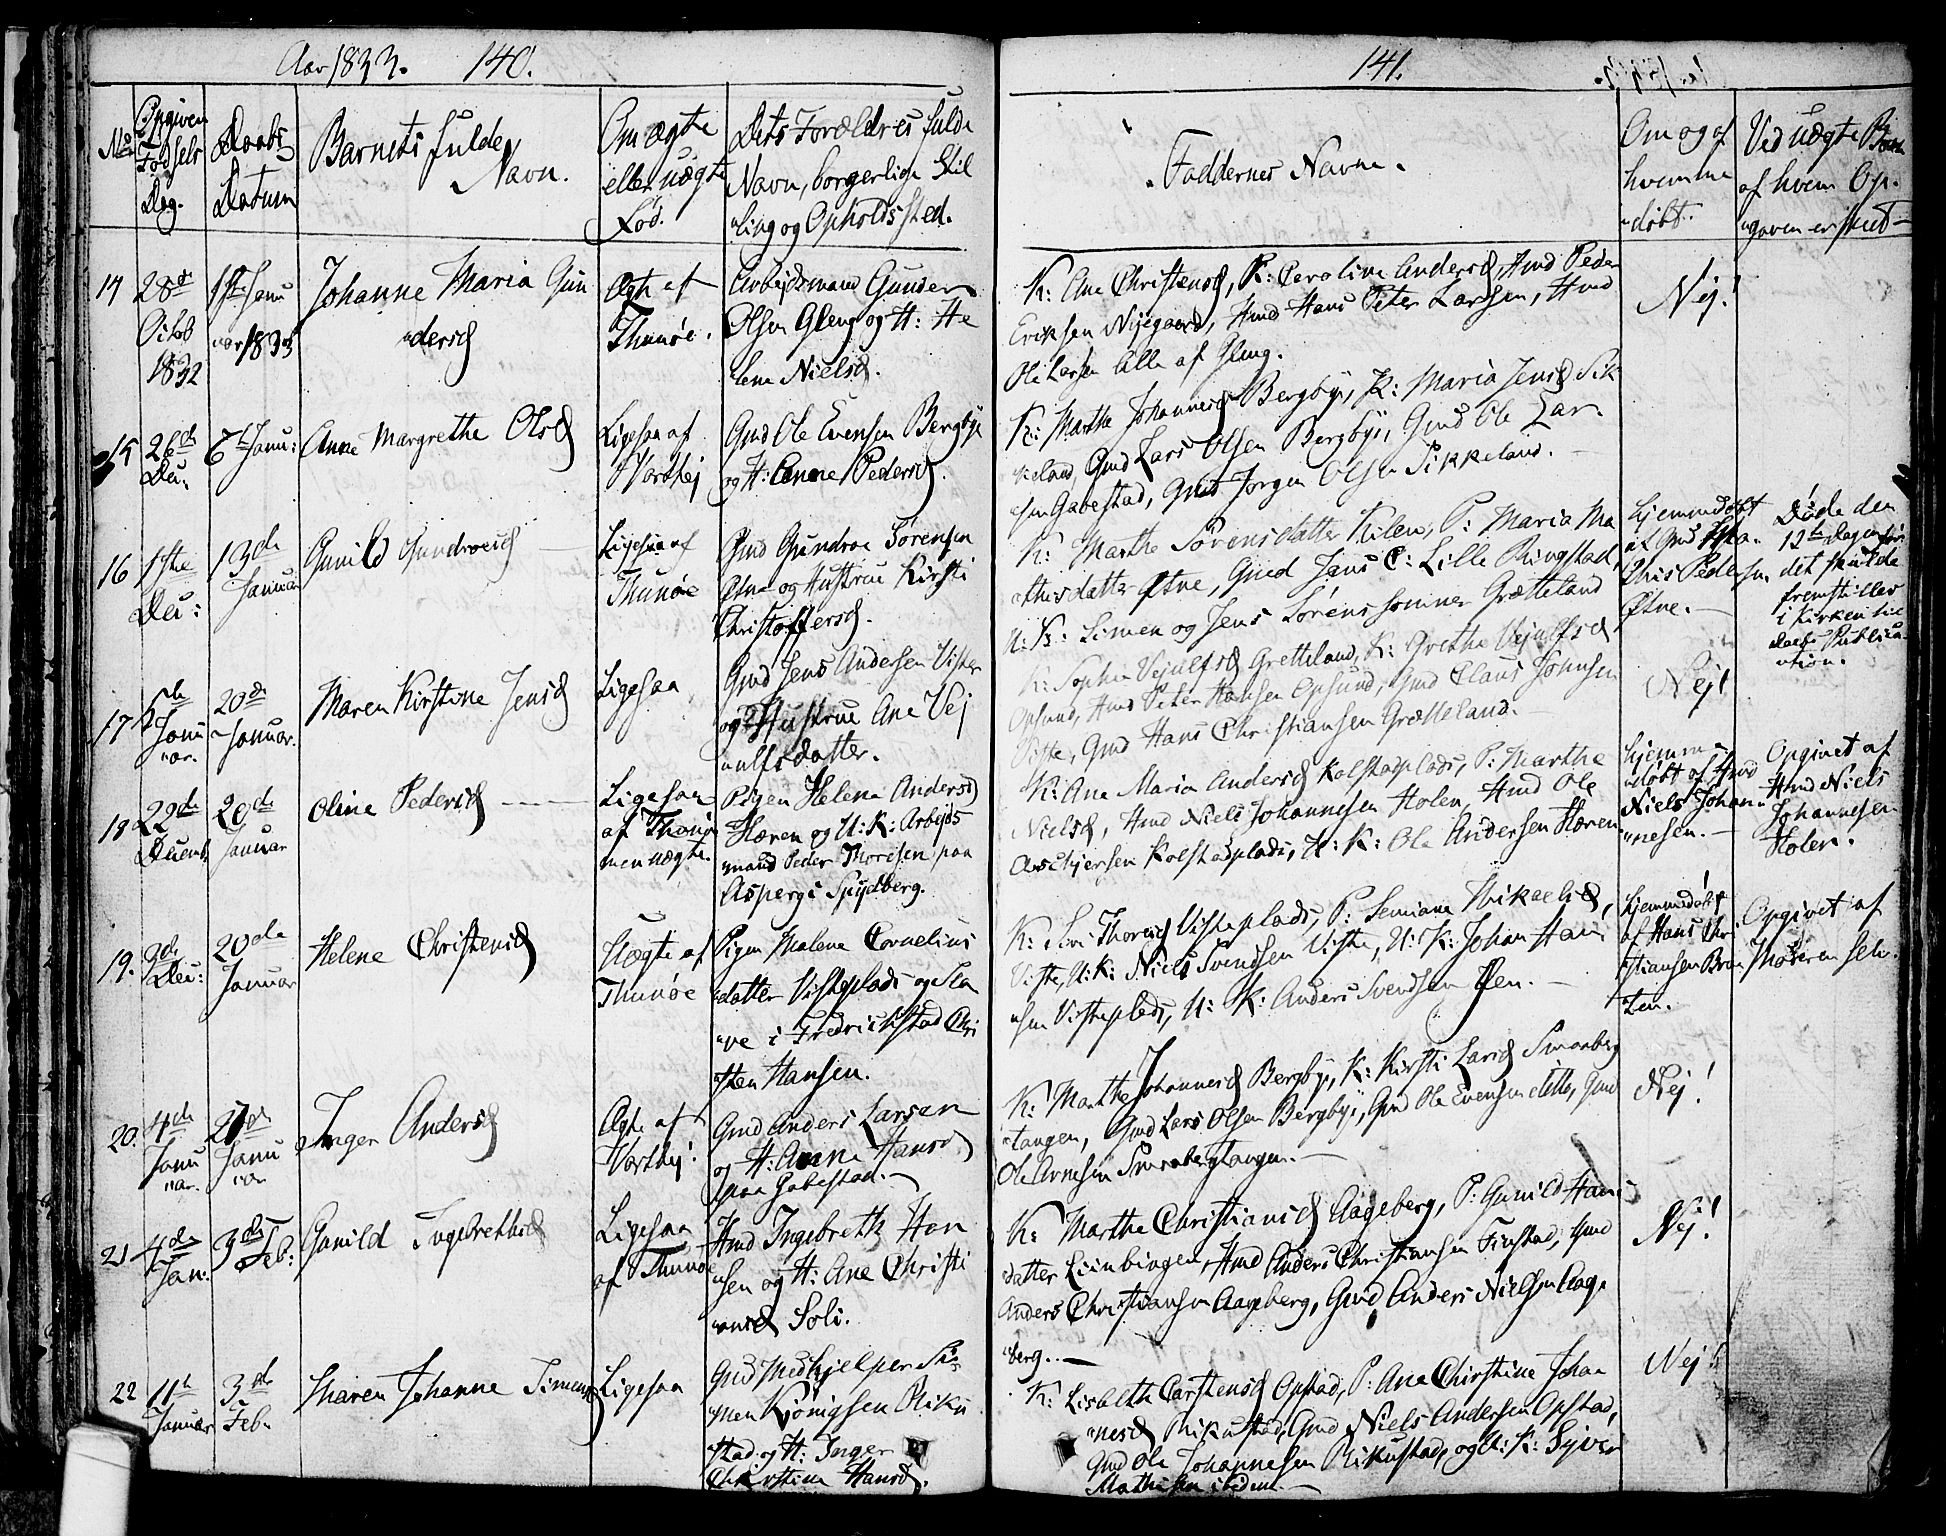 Aar 1833. 140.
No
Opgiven Fødsels Dag.
Daabs Datum
Barnets fulde Navn.
Om ægte eller uægte Fød.
Dets Forældres fulde Navn, borgerlige Stilling og Opholdssted.
14
28de
Octob
1832
1ste Janu
ar 1833
Johanne Maria Gun
dersd
Ægte af
Thunøe.
Arbejdsmand Gunder
Olsen Gleng og H: He
lene Nielsd.
15
26de
Dec.
6te Janu:
Anne Margrethe Olsd
Ligesaa af
Vartej
Gmd Ole Evensen Bergbye
og H: Anne Pedersd.
16
1ste
Dec:
13de
Januar
Gunild Gundroesd
Ligesaa af
Thunøe
Gmd Gundroe Sørensen
Østne og Hustrue Kirsti
Christoffersd.
17
Janu
ar.
20de
Januar.
Maren Kirstine Jensd
Ligesaa
Gmd Jens Andersen Viste
og Hustrue Ane Vej
ulfsdatter.
18
22de
Decemb
20de
Januar
Oline Pedersd
Ligesaa
af Thunøe
men uægte.
Pigen Helene Andersd
Hæren og U: K: Arbejds
mand Peder Thoresen paa
Asperg i Spydberg.
19.
3de
Dec:
20de
Januar
Helene Christensd
Uægte af
Thunøe
Pigen Malene Cornelius
datter Visteplads og Sla
ve i Fredrichstad Chri
sten Hansen.
20.
4de
Janu
ar.
27de
Janu
ar
Inger Andersd
Ægte af
Vartej.
Gmd Anders Larsen
og H: Anne Hansd
paa Gabestad.
21
4de
Jan:
3de
Feb:
Gunild Ingebrethsd
Ligesaa
af Thunøe
Hmd Ingebreth Han
sen og H: Ane Christi
ansd Soli.
22
11te
Januar
3de
Feb.
Maren Johanne Simensd
Ligesaa
Gmd Medhjelper Si
men Kjønigsen Riku
stad og H: Inger
Christine Hansd.
141.
Faddernes Navne.
Om og af
hvem hjemme
døbt.
Ved uægte Børn
af hvem Op
gaven er skeet
K: Ane Christensd, P: Caroline Andersd, Hmd Peder
Eriksen Nyegaard, Hmd Hans Peter Larssen, Hmd
Ole Larsen lille af Gleng.
Nej!
K: Marthe Johannesd Bergbye, K: Maria Jensd Sik
keland, Gmd Lars Olsen Bergbye, Gmd Ole Lar
sen Gabestad, Gmd Jørgen Olsen Sikkeland.
K: Marthe Sørensdatter Kilen, P: Maria Ma
thisdatter Østne, Gmd Jens C: Lille Ringstad,
U: K: Simen og Jens Sørenssønner Grætteland
Hjemmedøbt
af Gmd Ma
this Pedersen
Østne.
Døde den
12te Dagen før
det skulde
fremstilles
i Kirken til
Daabs Publica
ation.
K: Sophie Vejulfsd Gretteland, K: Grethe Vejulfsd
Opsund, Hmd Peter Hansen Opsund, Gmd Claus Johnsen
Viste, Gmd Hans Christiansen Grætteland.
Nej!
K: Ane Maria Andersd Kolstadplads, P: Marthe
Nielsd, Hmd Niels Johannesen Holen, Hmd Ole
Asbjersen Kolstadplads, U: K: Ole Andersen Hæren
Hjemme
døbt af Hmd
Niels Johan
nesen.
Opgivet af
Hmd Niels
Johannesen
Holen.
K: Siri Thoresd Visteplads, P: Semiane Mikaelsd,
Viste, U: K: Niels Svendsen Viste, U: K: Johan Han
sen Visteplads, U: K: Anders Svendsen Øen.
Hjemmedøbt
af Hans Chri
stiansen Bra
ten.
Opgivet af
Moderen selv.
K: Marthe Johannesd Bergbye, K: Kirsti Larsd Smaaberg
tangen, Gmd Lars Olsen Bergbye, Gmd Ole Evensen ditto, Gmd
Ole Arnesen Smaabergtangen.
Nej!
K: Marthe Christiansd Aageberg, P: Gunild Hans
datter Liinbingen, Hmd Anders Christiansen Finstad, Gmd
Anders Christiansen Aageberg, Gmd Anders Nielsen Aage
berg.
Nej!
K: Lisabeth Carstensd Opstad, P: Ane Christine Johan
nesd Rikustad, Gmd Niels Andersen Opstad,
Gmd Ole Johannesen Rikustad, og U: K: Syver
Mathisen ibidem.
Nej!